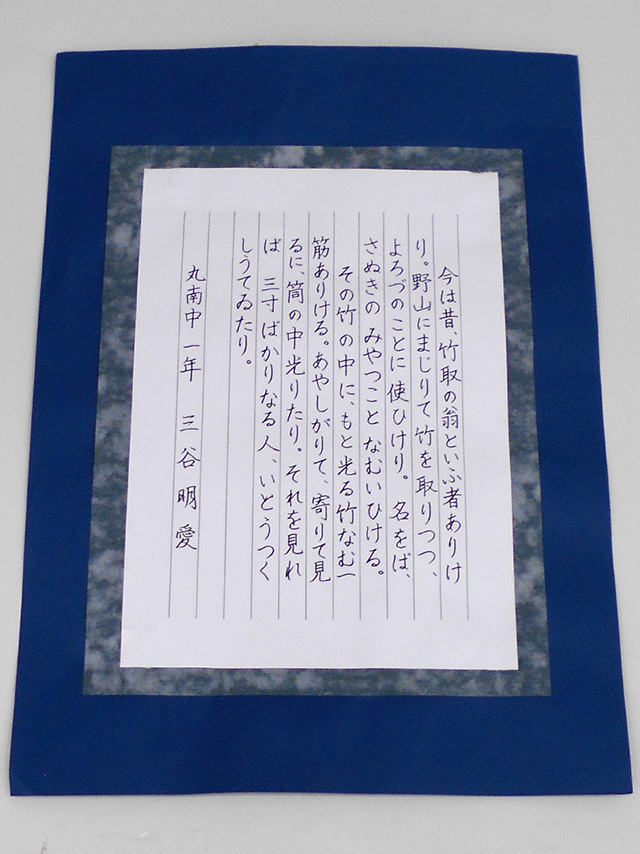 今は昔、竹取の翁といふ者ありけ
り。野山にまじりて竹を取りつつ、
よろづのことに使ひけり。名をば、
さぬきの みやつこと なむいひける。
その竹の中に、もと光る竹なむ一
筋ありける。あやしがりて、寄りて見
るに、筒の中光りたり。それを見れ
ば 三寸ばかりなる人、いとうつく
しうてゐたり。
丸南中 一年 三谷明愛